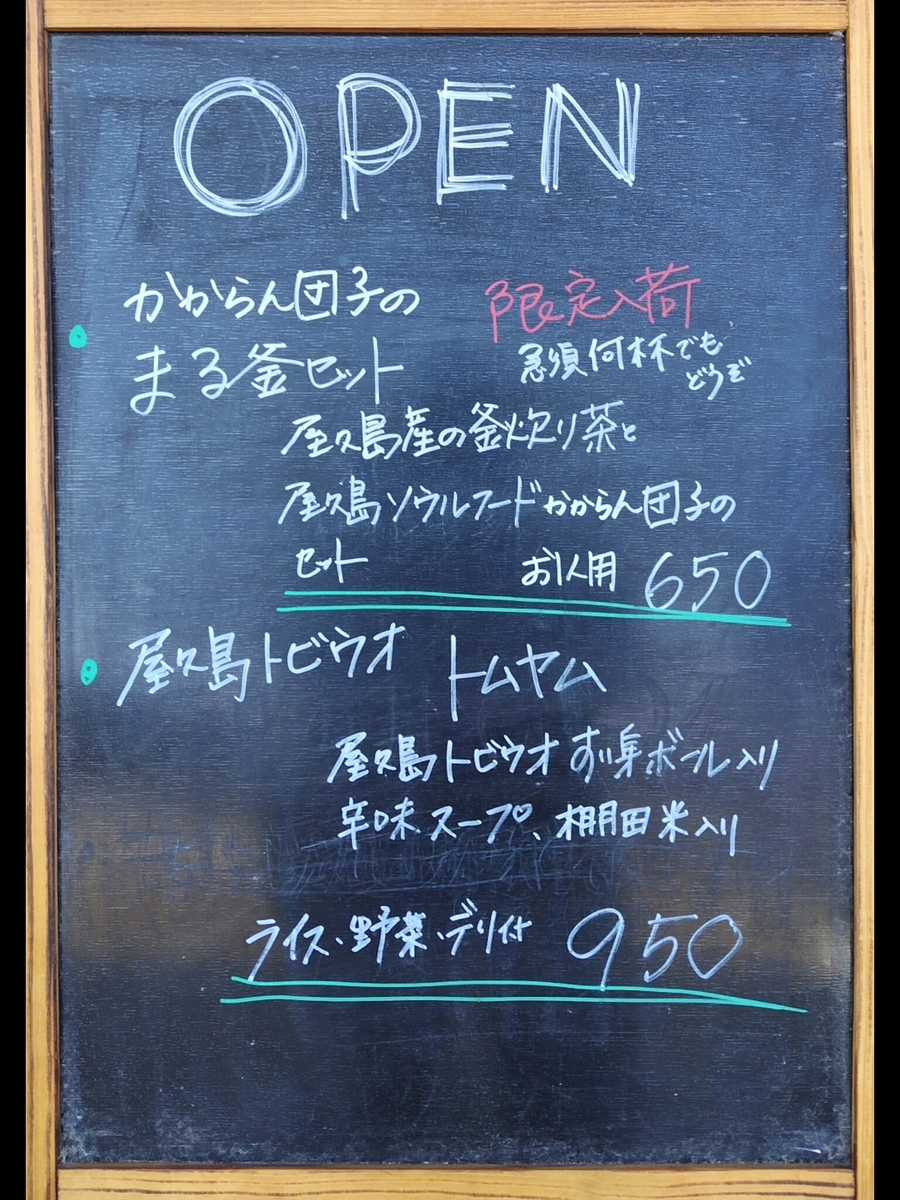 OPEN
かからん団子の 限定入荷
まる釜セット 急須何杯でも
どうぞ
屋久島産の釜炊り茶と
屋久島ソウルフードかからん団子の
セット お1人用 650
屋久島トビウオ トムヤム
屋久島トビウオすり身ボール入り
辛味スープ、棚田米入り
ライス、野菜、デリ付 950